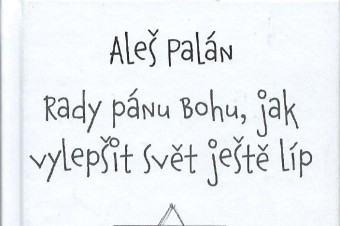 Aleš Palán
Rady pánu Bohu, jak
vylepšit svět ještě líp